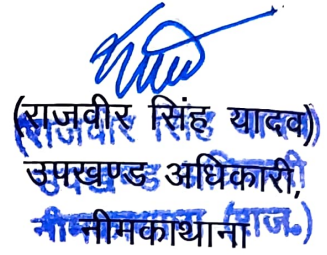 (राजवीर सिंह यादव)
उपखण्ड अधिकारी,
नीमकाथाना (राज.)